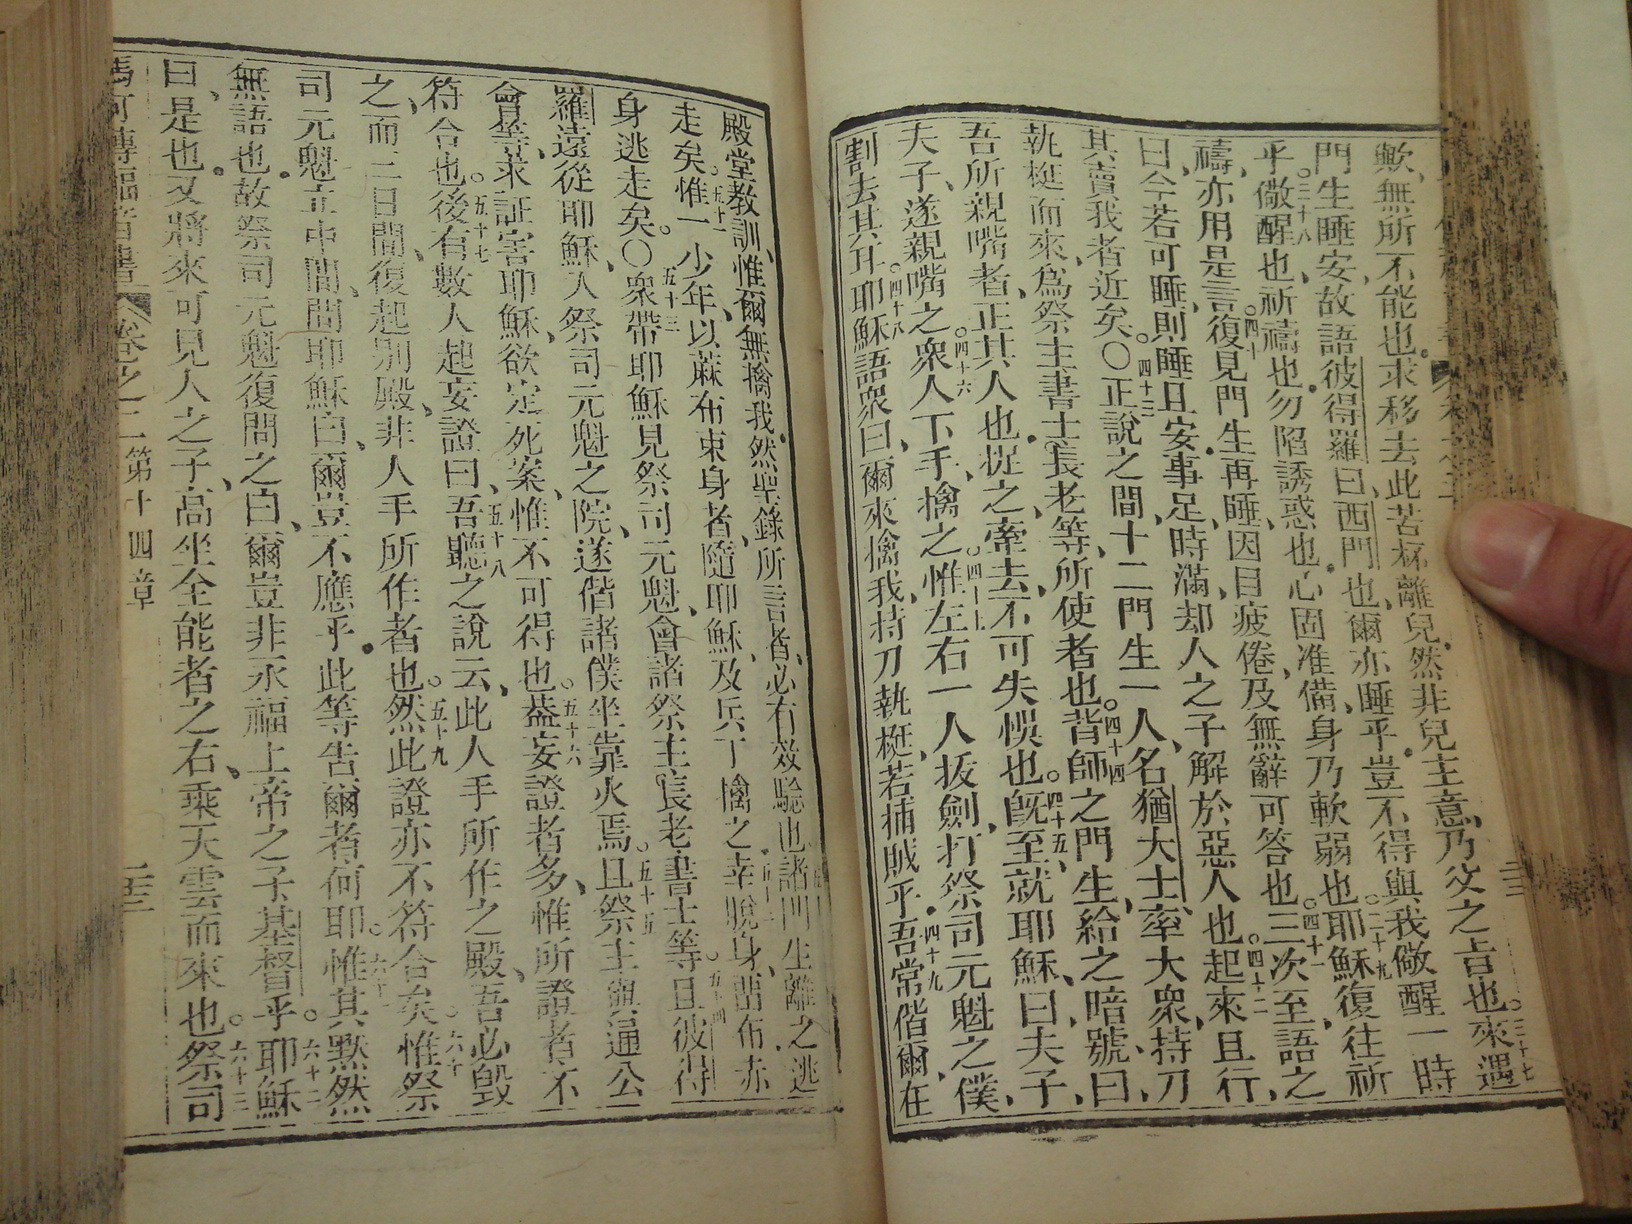 歟、無所不能也、求移去此苦杯離兒、然非兒主意、乃父之旨也、來遇
三十七
門生睡安、故語彼得羅曰、西門也、爾亦睡乎、豈不得與我儆醒一時
乎、三十八儆醒也、祈禱也、勿陷誘惑也、心固准備、身乃軟弱也、三十九耶穌復往祈
禱、亦用是言、四十復見門生再睡、因目疲倦、及無辭可答也、四十一三次至、語之
曰、今若可睡、則睡且安、事足、時滿、却人之子解於惡人也、四十二起來且行、
其賣我者近矣。〇四十三正說之間、十二門生一人、名猶大士、率大衆、持刀
執梃而來、爲祭主書士長老等、所使者也、四十四背師之門生、給之暗號曰、
吾所親嘴者、正其人也、捉之牽去、不可失悞也、四十五旣至、就耶穌、曰、夫子、
夫子、遂親嘴之、四十六衆人下手、擒之、四十七惟左右一人拔劍、打祭司元魁之僕、
割去其耳、四十八耶穌語衆曰、爾來擒我、持刀執梃、若捕賊乎、四十九吾常偕爾、在
殿堂教訓、惟爾無擒我、然聖錄所言者、必有效驗也、諸門生離之逃
走矣、五十一惟一少年、以蔴布束身者、隨耶穌、及兵丁擒之、五十二幸脫身、留布赤
身逃走矣。〇五十三衆帶耶穌見祭司元魁、會諸祭主長老書士等、五十四且彼得
羅遠從耶穌、入祭司元魁之院、遂偕諸僕坐靠火焉、五十五且祭主與通公
會等、求証害耶穌、欲定死案、惟不可得也、五十六蓋妄證者多、惟所證者不
符合也、五十七後有數人起妄證曰、五十八吾聽之說云、此人手所作之殿、吾必毁
之、而三日間、復起別殿、非人手所作者也、五十九然此證亦不符合矣、六十惟祭
司元魁立中間、問耶穌曰、爾豈不應乎、此等告爾者何耶、六十一惟其默然
無語也、故祭司元魁復問之曰、爾豈非永福上帝之子基督乎、六十二耶穌
曰、是也、又將來可見人之子、高坐全能者之右、乘天雲而來也、六十三祭司
馬可傳福音書 卷之二 第十四章 三十三